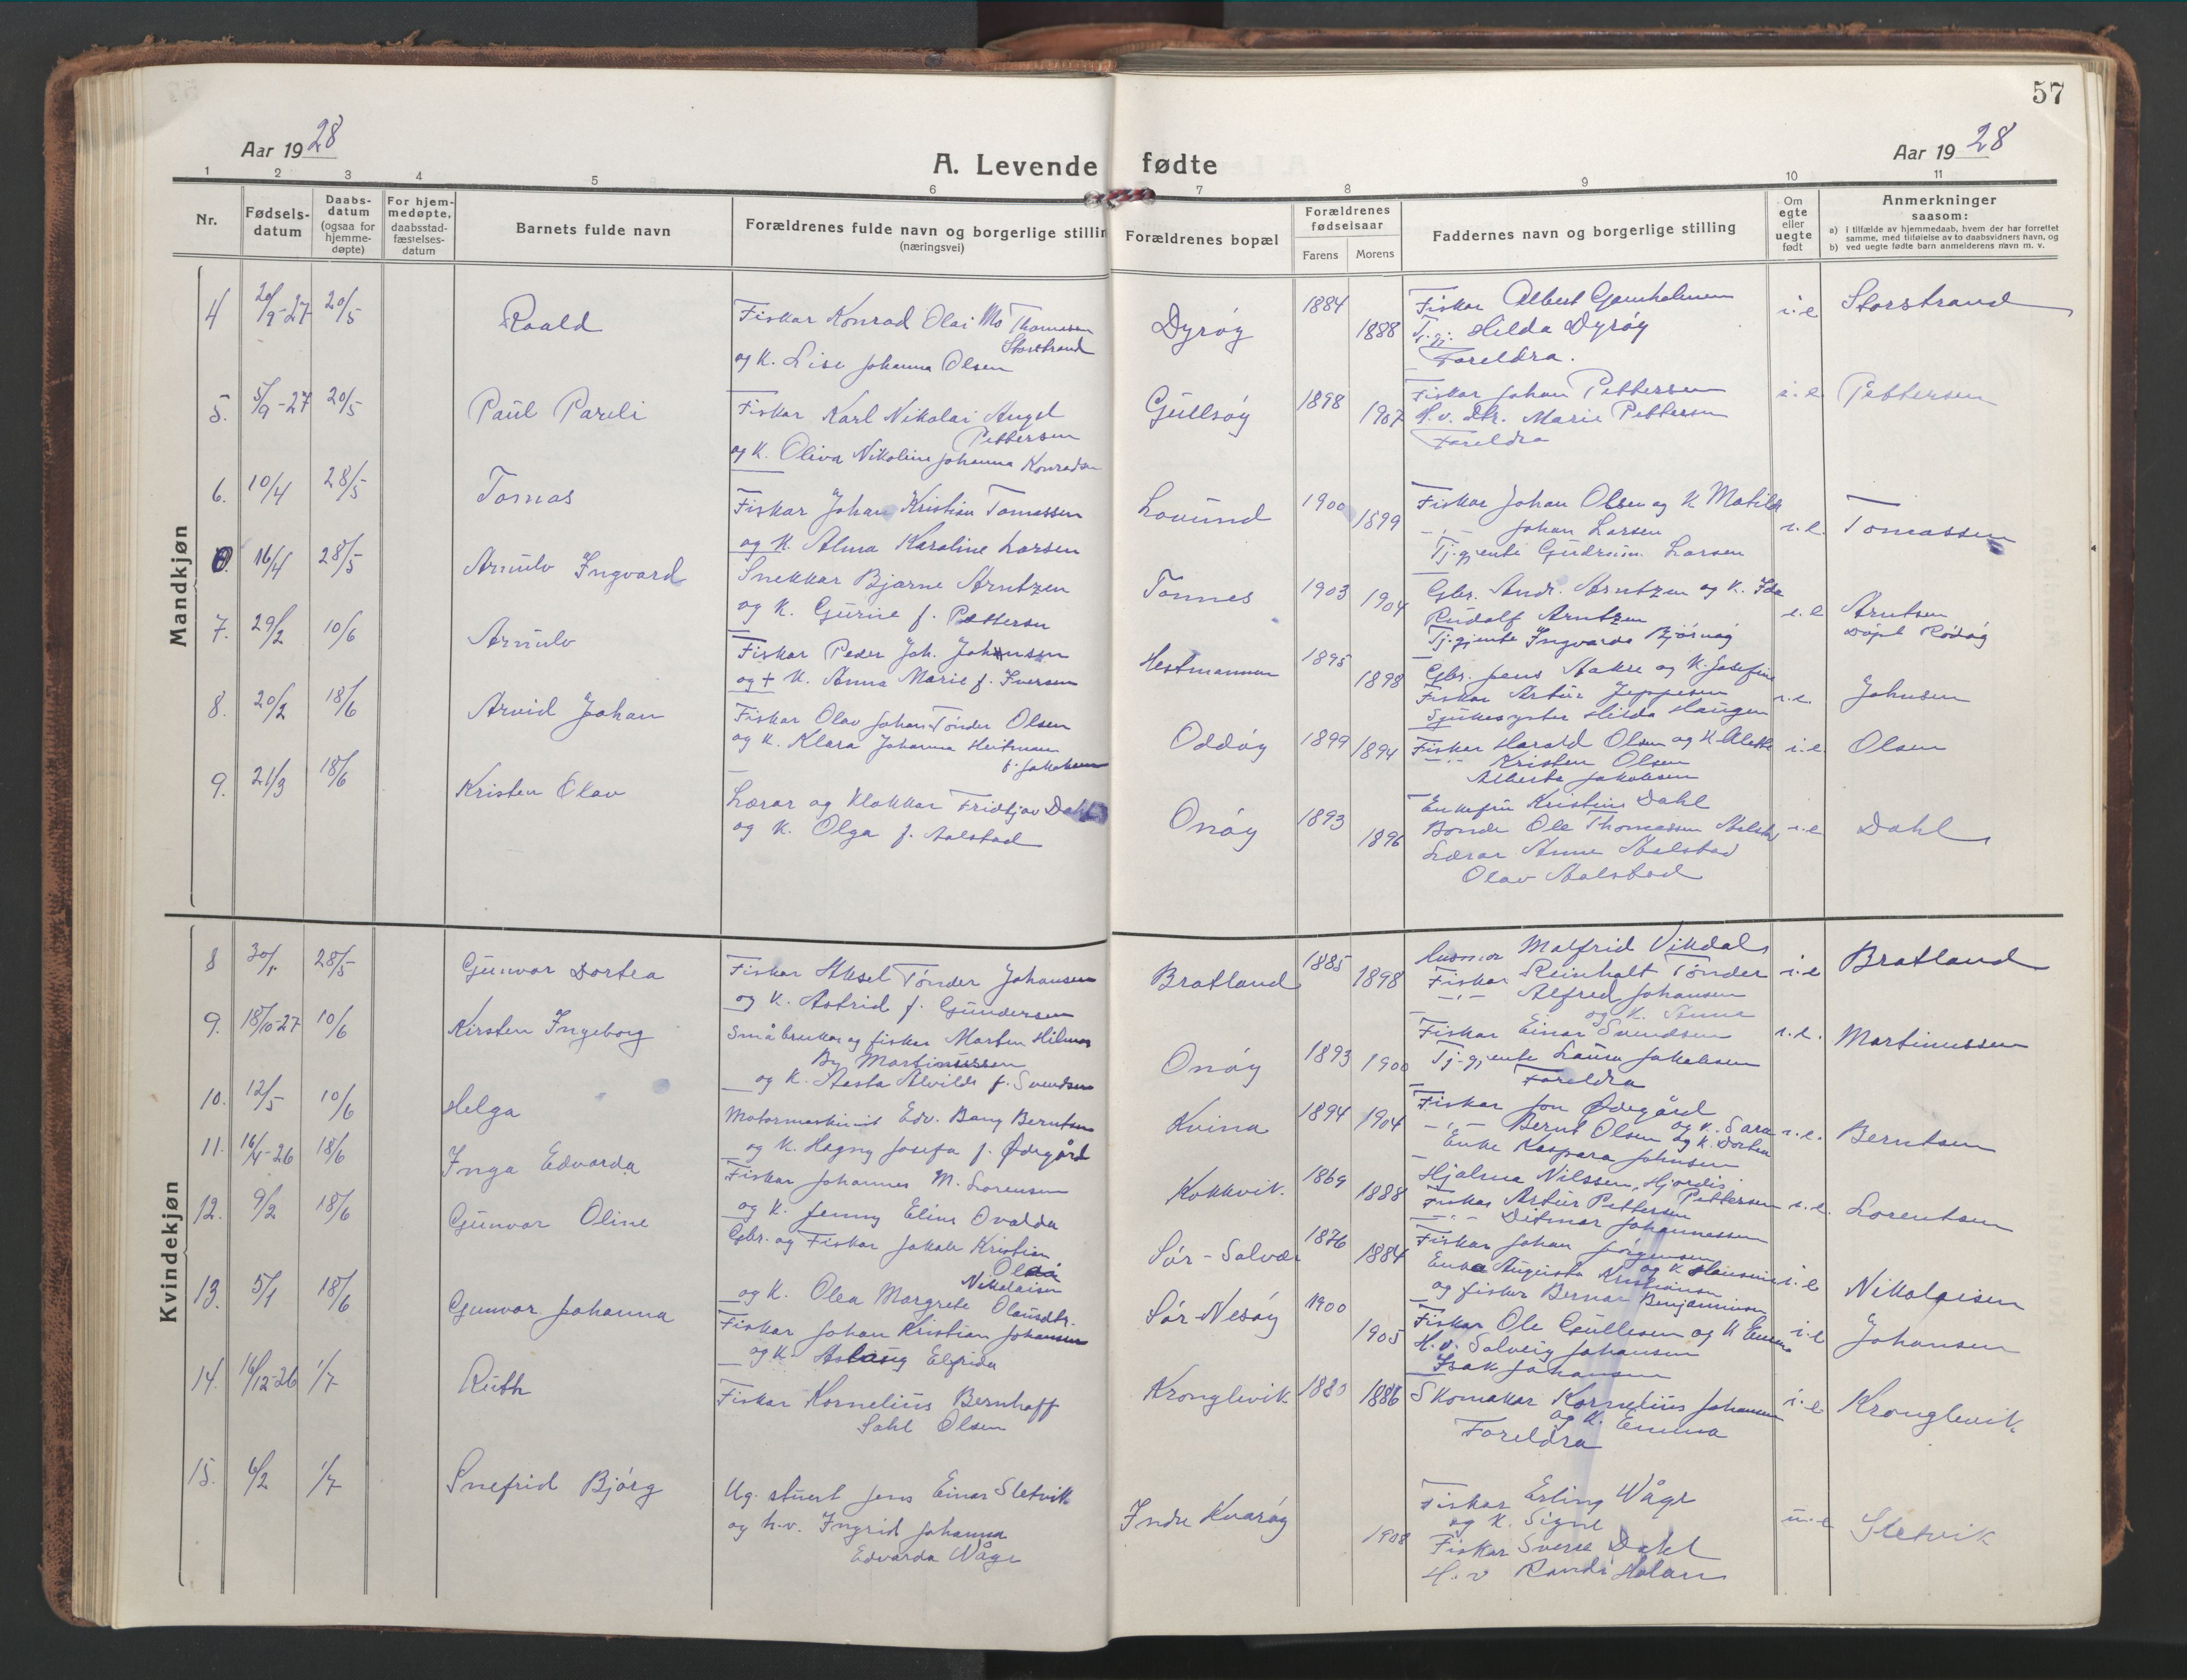 57
Aar 1928
A. Levende fødte
Aar 1928
1 2 3 4 5 6 7 8 9 10 11
Nr.
Fødsels-
datum
Daabs-
datum
(ogsaa for
hjemme-
døpte)
For hjem-
medøpte,
daabsstad-
fæstelses-
datum
Barnets fulde navn
Forældrenes fulde navn og borgerlige stillin
(næringsvei)
Forældrenes bopæl
Forældrenes
fødselsaar
Farens Morens
Faddernes navn og borgerlige stilling
Om
egte
eller
uegte
født
Anmerkninger
saasom:
a) i tilfælde av hjemmedaab, hvem der har forrettet
samme, med tilføielse av to daabsvidners navn, og
b) ved uegte fødte barn anmelderens navn m. v.
Mandkjøn
4 20/9-27 20/5 Roald
Fiskar Konrad Olai Mo Thomasen
Storstrand
og K. Lise Johanna Olsen
Dyrøy 1884 1888
Fiskar Albert
Tj.gj. Hilda Dyrøy
Foreldra.
i.e Storstrand
5. 5/9-27 20/5 Paul Pareli
Fiskar Karl Nikolai Angel
Pettersen
og K. Oliva Nikoline Johanna Konradsen
Gullsøy 1898 1907
Fiskar Johan Pettersen
H.v. dtr. Marie Pettersen
Foreldra
i.e Pettersen
6. 10/4 28/5 Tomas
Fiskar Johan Kristian Tomassen
og K. Alma Karoline Larsen
Lovund 1900 1899
Fiskar Johan Olsen og K Matilde
-,,- Johan Larsen
Tj.gjente Gudrun Larsen
i.e. Tomassen
0. 16/4 28/5 Arnulv Ingvard
Snekkar Bjarne Arntzen
og K. Gurine f. Pettersen
Tonnes 1903 1904
Gbr. Andr. Arntzen og K. Ida
Rudolf Arntzen
Tj.gjente Ingvarda Bjørnøy
i.e Arntsen
Døpt Rødøy
7. 29/2 10/6 Arnulv
Fiskar Peder Joh. Johnsen
og + K. Anna Marie f. Iversen
Hestmannen 1895 1898
Gbr. Jens Aakre og K. Josefine
Fiskar Artur Jeppesen
Sjukesyster Hilda Haugen
i.e. Johnsen
8. 20/2 18/6 Arvid Johan
Fiskar Olav Johan Tønder Olsen
og K. Klara Johanna Heitman
f. Jakobsen
Oddøy 1899 1894
Fiskar Harald Olsen og K Alette
-,,- Kristen Olsen
Alberta Jakobsen
i.e Olsen
9. 21/3 18/6 Kristen Olav
Lærar og Klokkar Fridtjov Dahl
og K. Olga f. Aalstad
Onøy 1893 1896
Enkefru Kristine Dahl
Bonde Ole Thomassen Aalstad
Lærar Anne Aalstad
Olav Aalstad
i.e Dahl
Kvindekjøn
8 30/1 28/5 Gunvor Dortea
Fiskar Aksel Tønder Johansen
og K. Astrid f. Gundersen
Bratland 1885 1898
Husmor Malfrid Vikdal
Fiskar Reinholt Tønder
-,,- Alfred Johansen
og K. Anna
i.e Bratland
9. 18/10-27 10/6 Kirsten Ingeborg
Småbrukar og fiskar Morten Hilmar
By Martinussen
og K. Aasta Alvilde f. Svendsen
Onøy 1893 1900
Fiskar Einar Svendsen
Tj.gjente Laura Jakobsen
Foreldra
i.e. Martinussen
10. 12/5 10/6 Helga
Motormaskinist Edv. Bang Berntsen
og K. Hagny Josefa f. Ødegård
Kvina 1894 1904
Fiskar Jon Ødegård
og K. Sara
-,,- Bernt Olsen og K. Dortea
Enke Kaspara Johnsen
i.e. Berntsen
11. 16/4-26 18/6 Inga Edvarda
Fiskar Johannes M. Lorensen
og K. Jenny Elina Ovalda
Kokkvik. 1869 1888
Hjalma Nilssen, Hjordis
Pettersen
Fiskar Artur Pettersen
-,,- Ditmar Johannessen
i.e. Lorentsen
12. 9/2 18/6 Gunvor Oline
Gbr. og Fiskar Jakob Kristian
Olai
Nikolaisen
og K. Olea Margrete Olausdtr.
Sør-Solvær 1876 1884
Fiskar Johan Jørgensen
og K Hansine
Enke Augusta Kristiansen
og fiskar Bernar Benjaminsen
i.e Nikolaisen
13. 5/1 18/6 Gunvor Johanna
Fiskar Johan Kristian Johansen
og K. Aslaug Elfrida
Sør-Nesøy 1900 1905
Fiskar Ole Gullesen og K Emma
H.v. Solveig Johansen
Isak Johansen
i.e Johansen
14. 16/12-26 1/7 Ruth
Fiskar Kornelius Bernhoff
Dahl Olsen
Kronglevik 1880 1886
Skomakar Kornelius Johansen
og K. Emma
Foreldra
i.e Kronglevik
15. 6/2 1/7 Snefrid Bjørg
Ug. stuert Jens Einar Sletvik
og h.v. Ingrid Johanna
Edvarda Våge
Indre Kvarøy 1908
Fiskar Erling Våge
og K. Signe
Fiskar Sverre Dahl
H.v Randi Holan
u.e Sletvik